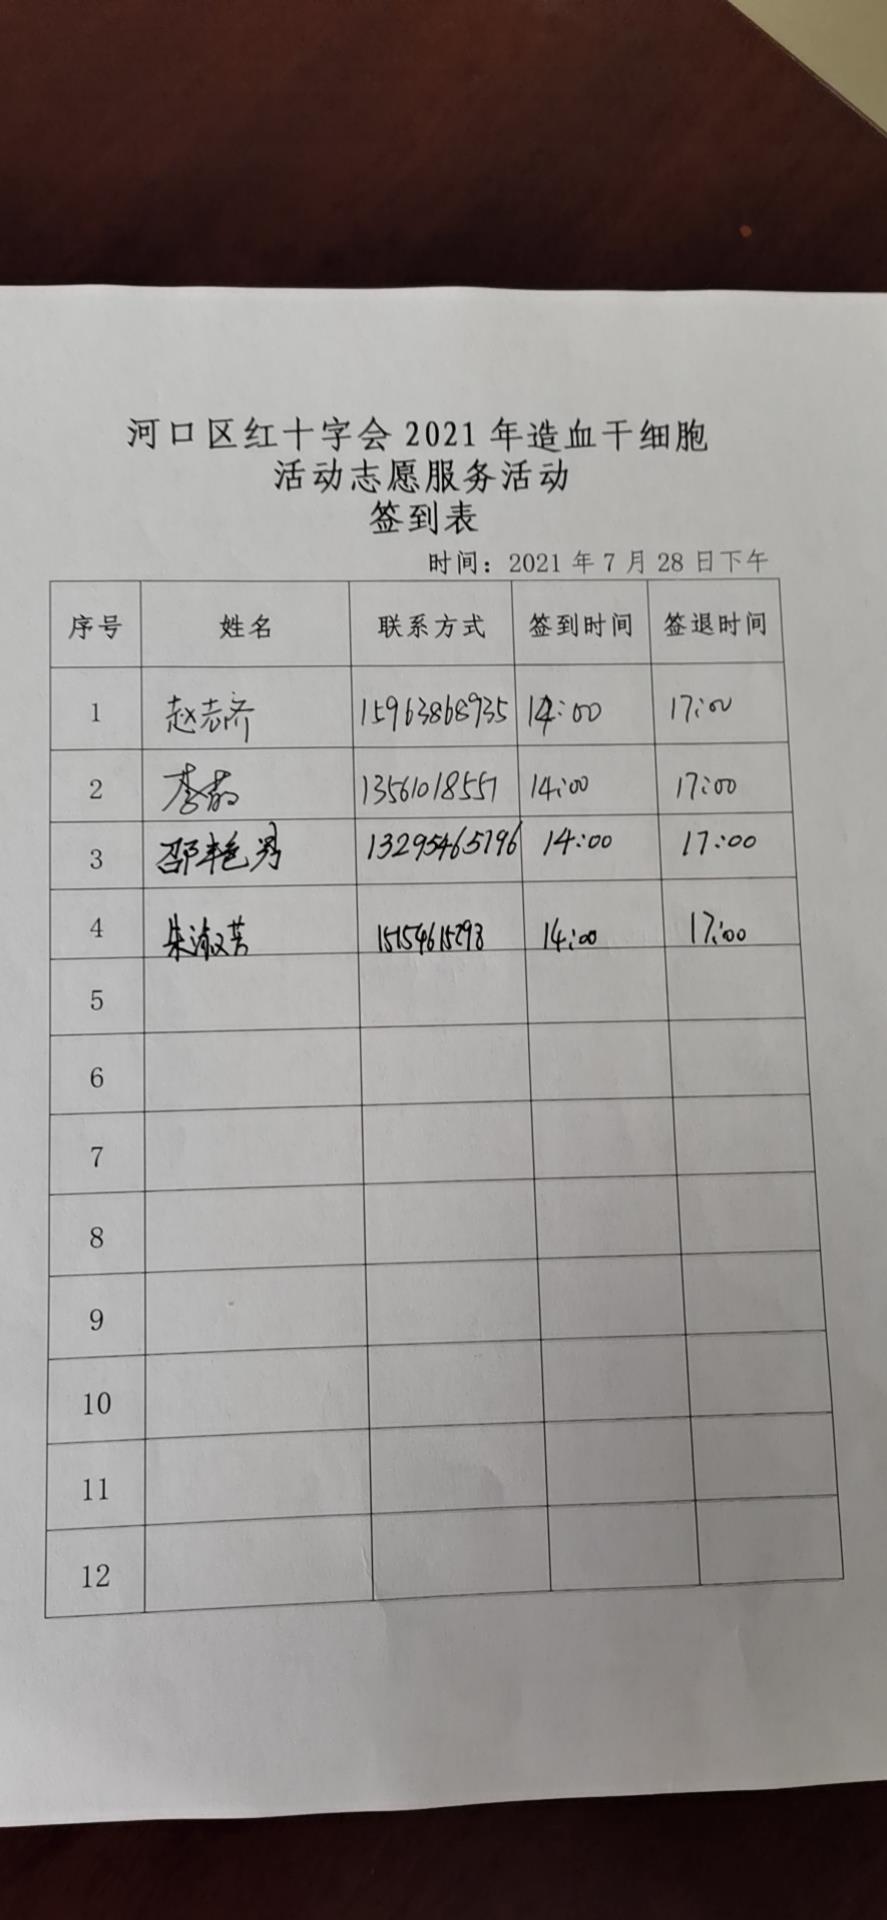 河口区红十字会 2021 年造血干细胞
活动志愿服务活动
签到表
时间：2021 年 7 月 28 日下午
序号 姓名 联系方式 签到时间 签退时间
1 赵志齐 15963868935 14:00 17:00
2 李 13561018557 14:00 17:00
3 邵艳秀 13295465796 14:00 17:00
4 朱淑芳 15154615293 14:00 17:00
5
6
7
8
9
10
11
12